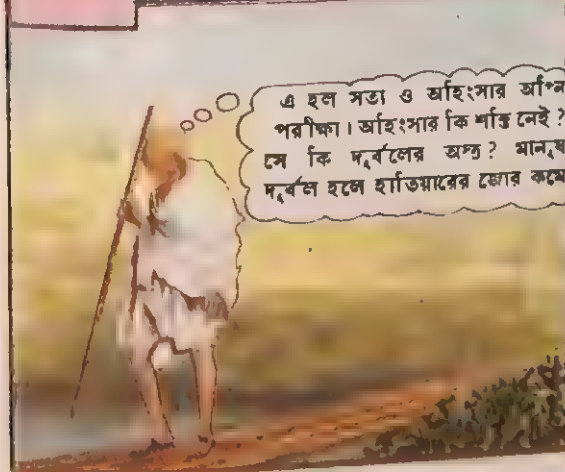 এ হল সত্য ও অহিংসার অগ্নি
পরীক্ষা। অহিংসার কি শক্তি নেই?
সে কি দুর্বলের অস্ত্র? মানুষ
দুর্বল হলে হাতিয়ারের জোর কমে